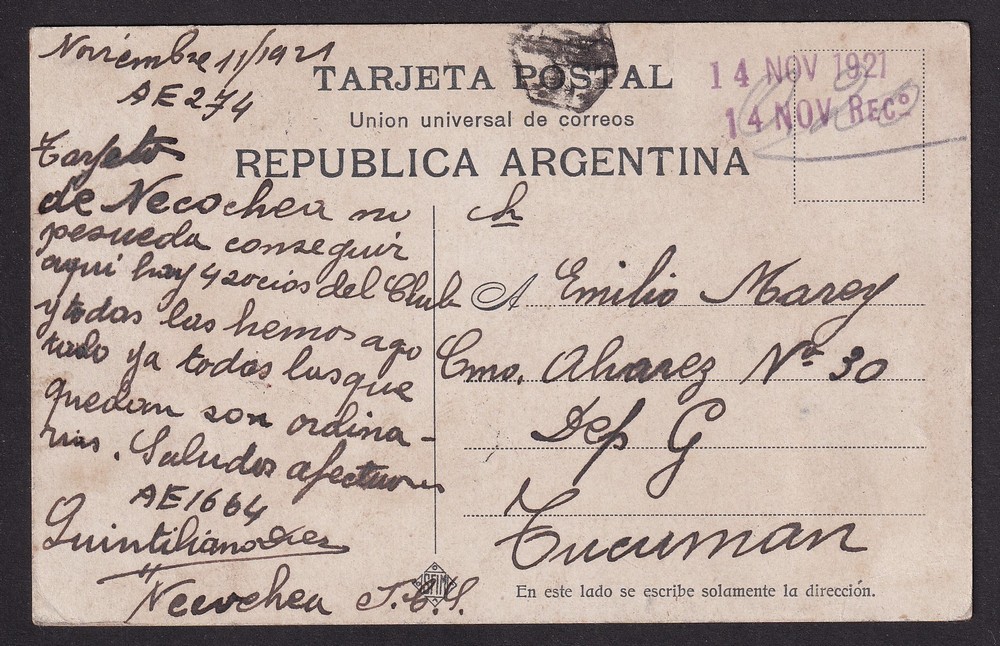 Noviembre 11/1921
AE 274
TARJETA POSTAL
14 NOV 1921
14 NOV RECº
Union universal de correos
REPUBLICA ARGENTINA
Tarjetas
de Necochea no
pesueda conseguir
aqui hay 4 socios del Club
y todas las hemos ago
tado ya todas las que
quedan son ordina-
rias. Saludos afectuosos
AE1664
Quintiliano Diez
Necochea F.C.S.
A Emilio Marey
Cmo. Alvarez Nº 30
Dep G
Tucuman
En este lado se escribe solamente la dirección.